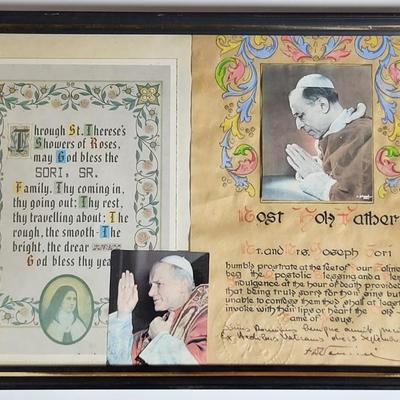 Through St. Therese's
Showers of Roses,
may God bless the
SORI, SR.
Family. Thy coming in,
thy going out; Thy rest,
thy travelling about: The
rough, the smooth-The
bright, the drear
God bless thy year
Most Holy Father
Mr. and Mrs. Joseph Sori
humbly prostrate at the feet of your Holiness
beg the Apostolic Blessing and a Plenary
Indulgence at the hour of death provided
that being truly sorry for their sins but
unable to confess them they shall at least
invoke with their lips or heart the Holy
Name of Jesus.